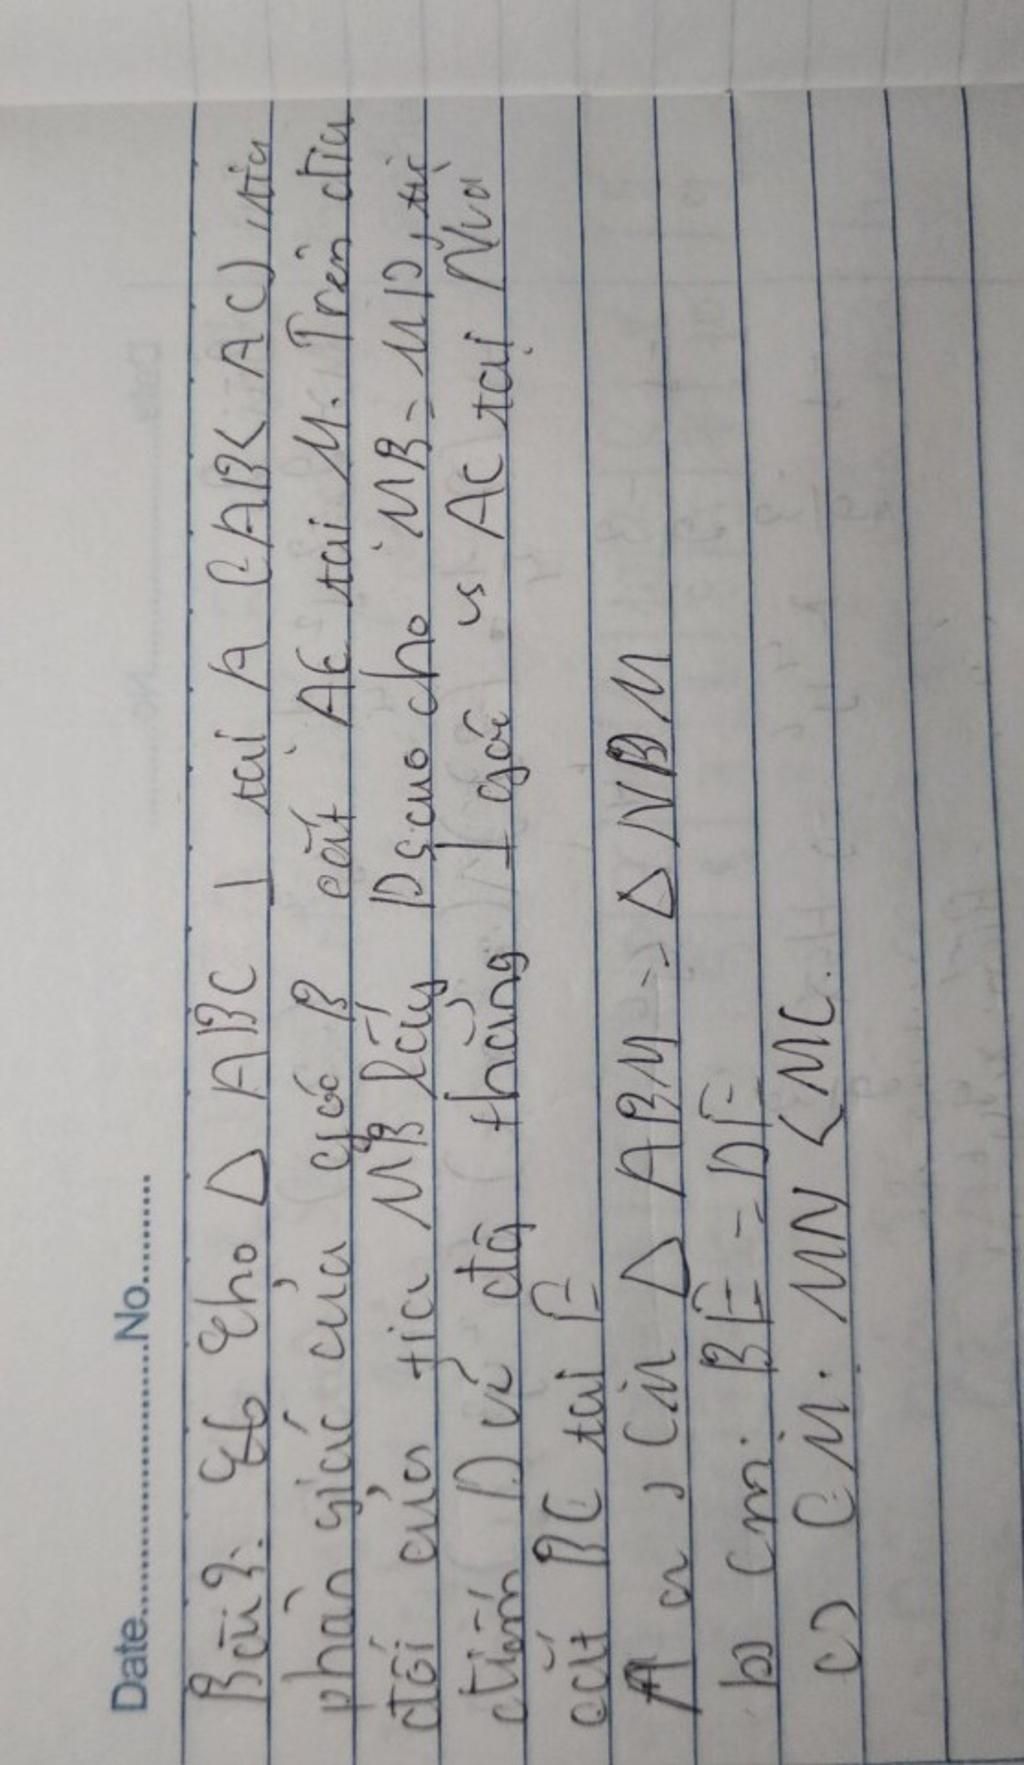 Date..............................No...........
Bài 2: Cho Δ ABC ⊥ tại A (AB< AC), tia
phân giác của góc B cắt AC tại M. Trên tia
đối của tia MB lấy D sao cho MB = MD, từ
điểm D vẽ đg thẳng ⊥ góc vs AC tại N và
cắt BC tại E
a) Cm Δ ABM = Δ NDM
b) Cm: BE = DE
c) Cm. MN < MC.